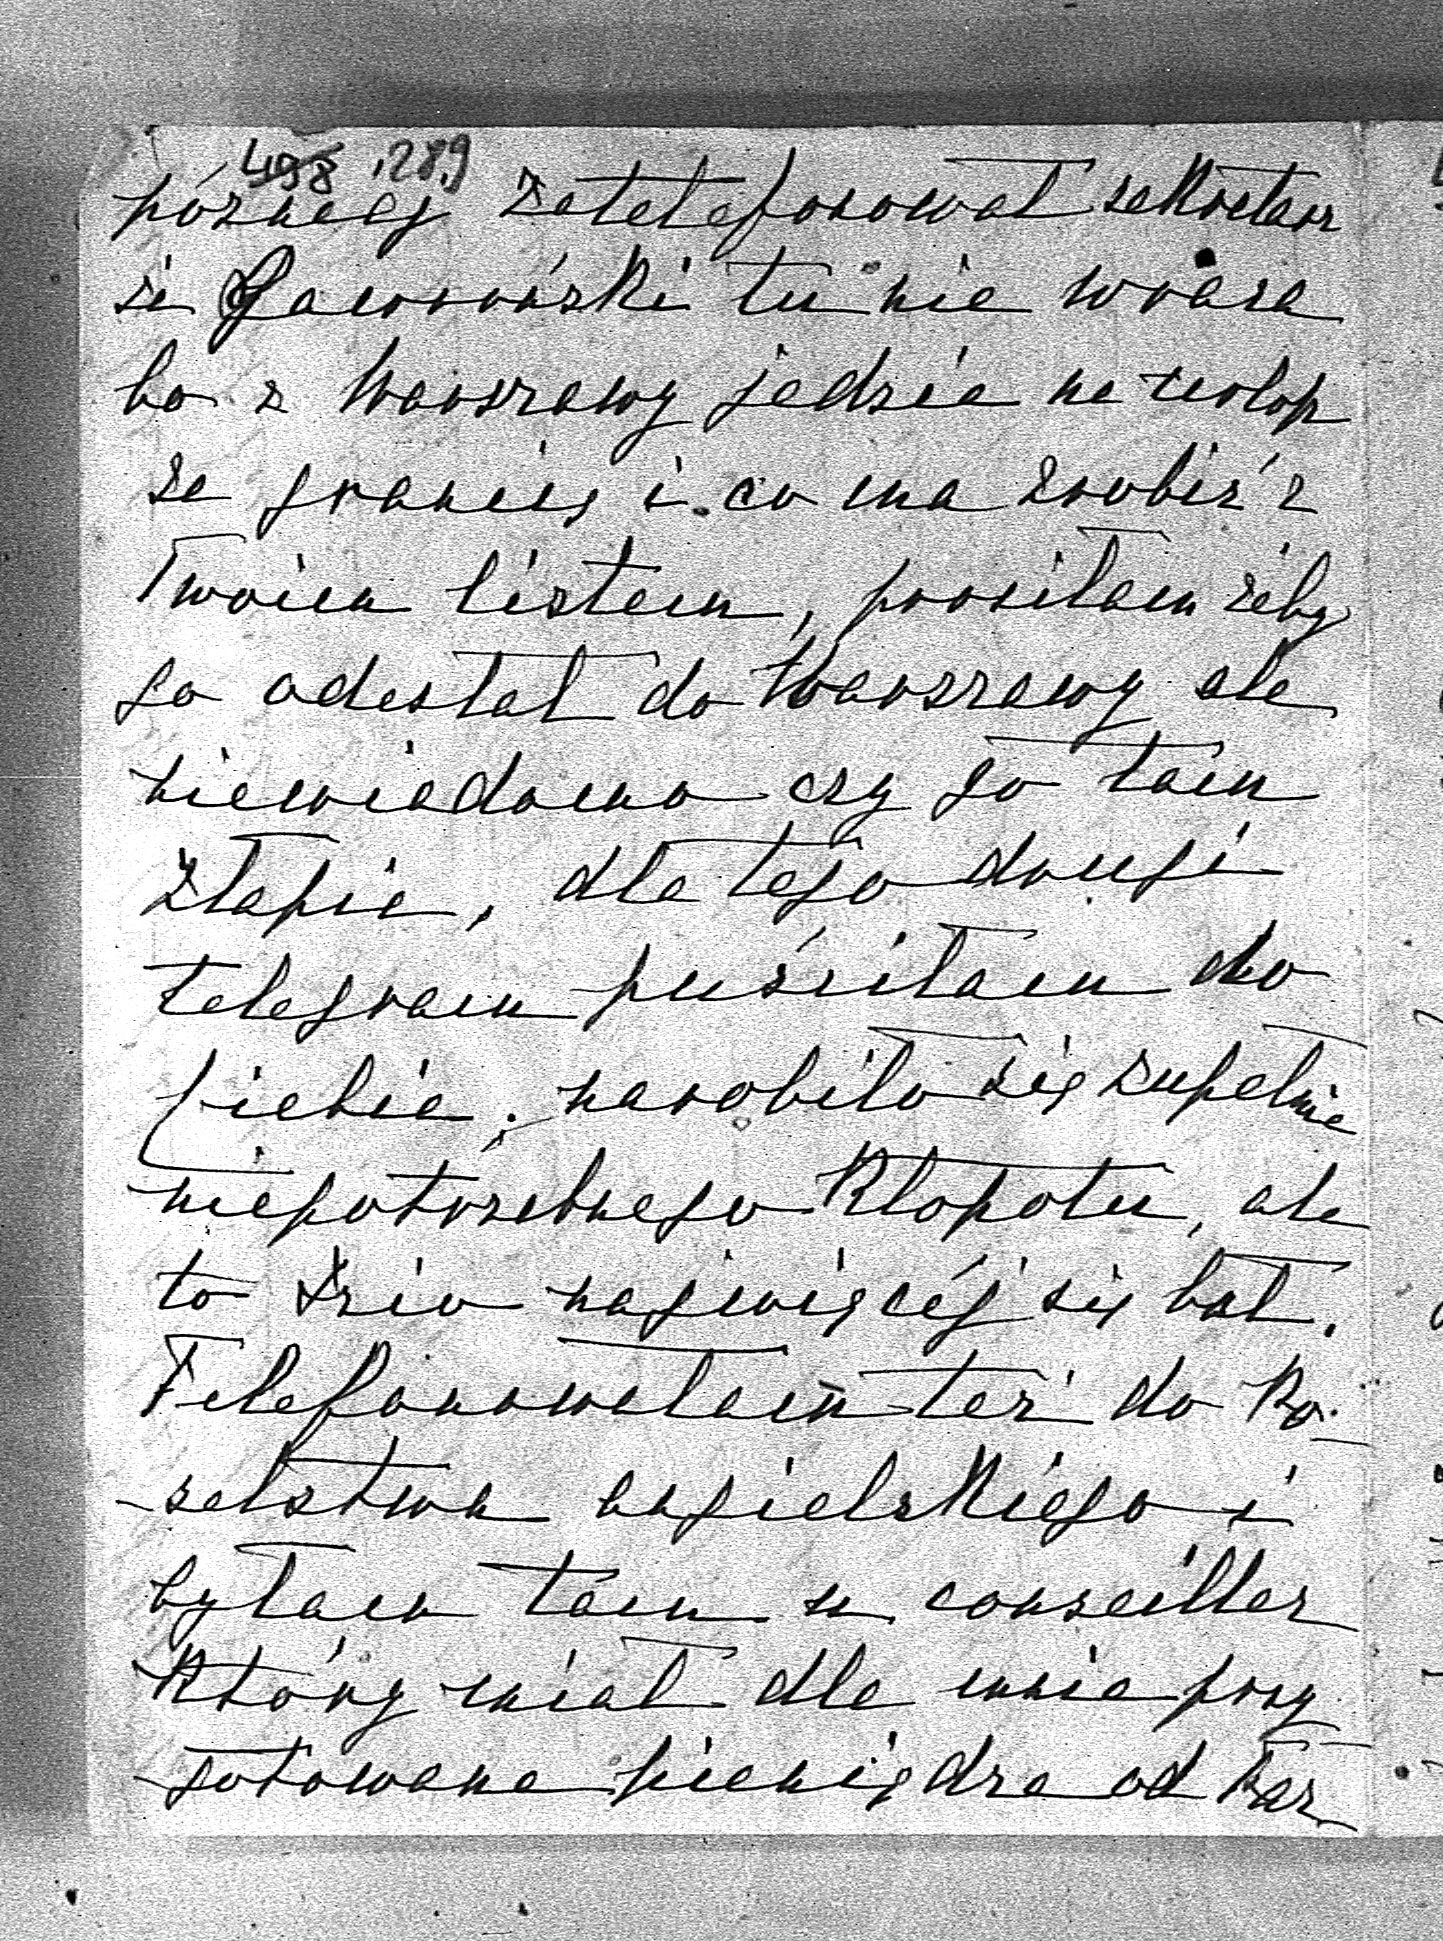 498 289
późniéj zatelefonował sekretarz
że Gawroński tu nie wraca
bo z Warszawy jedzie na urlop
za granicę i co ma zrobić z
Twoim listem, prosiłam żeby
go odesłał do Warszawy ale
niewiadomo czy go tam
złapie, dla tego drugi
telegram puściłam do
Ciebie, narobiło się zupełnie
niepotrzebnego kłopotu, ale
to się najwięcéj się bał.
Telefonowałam też do Po-
-selstwa angielskiego i
byłam tam u conseiller
który miał dla mnie przy
-gotowane pieniądze od